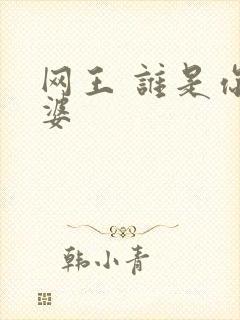 网王 誰是你
婆
韩小青